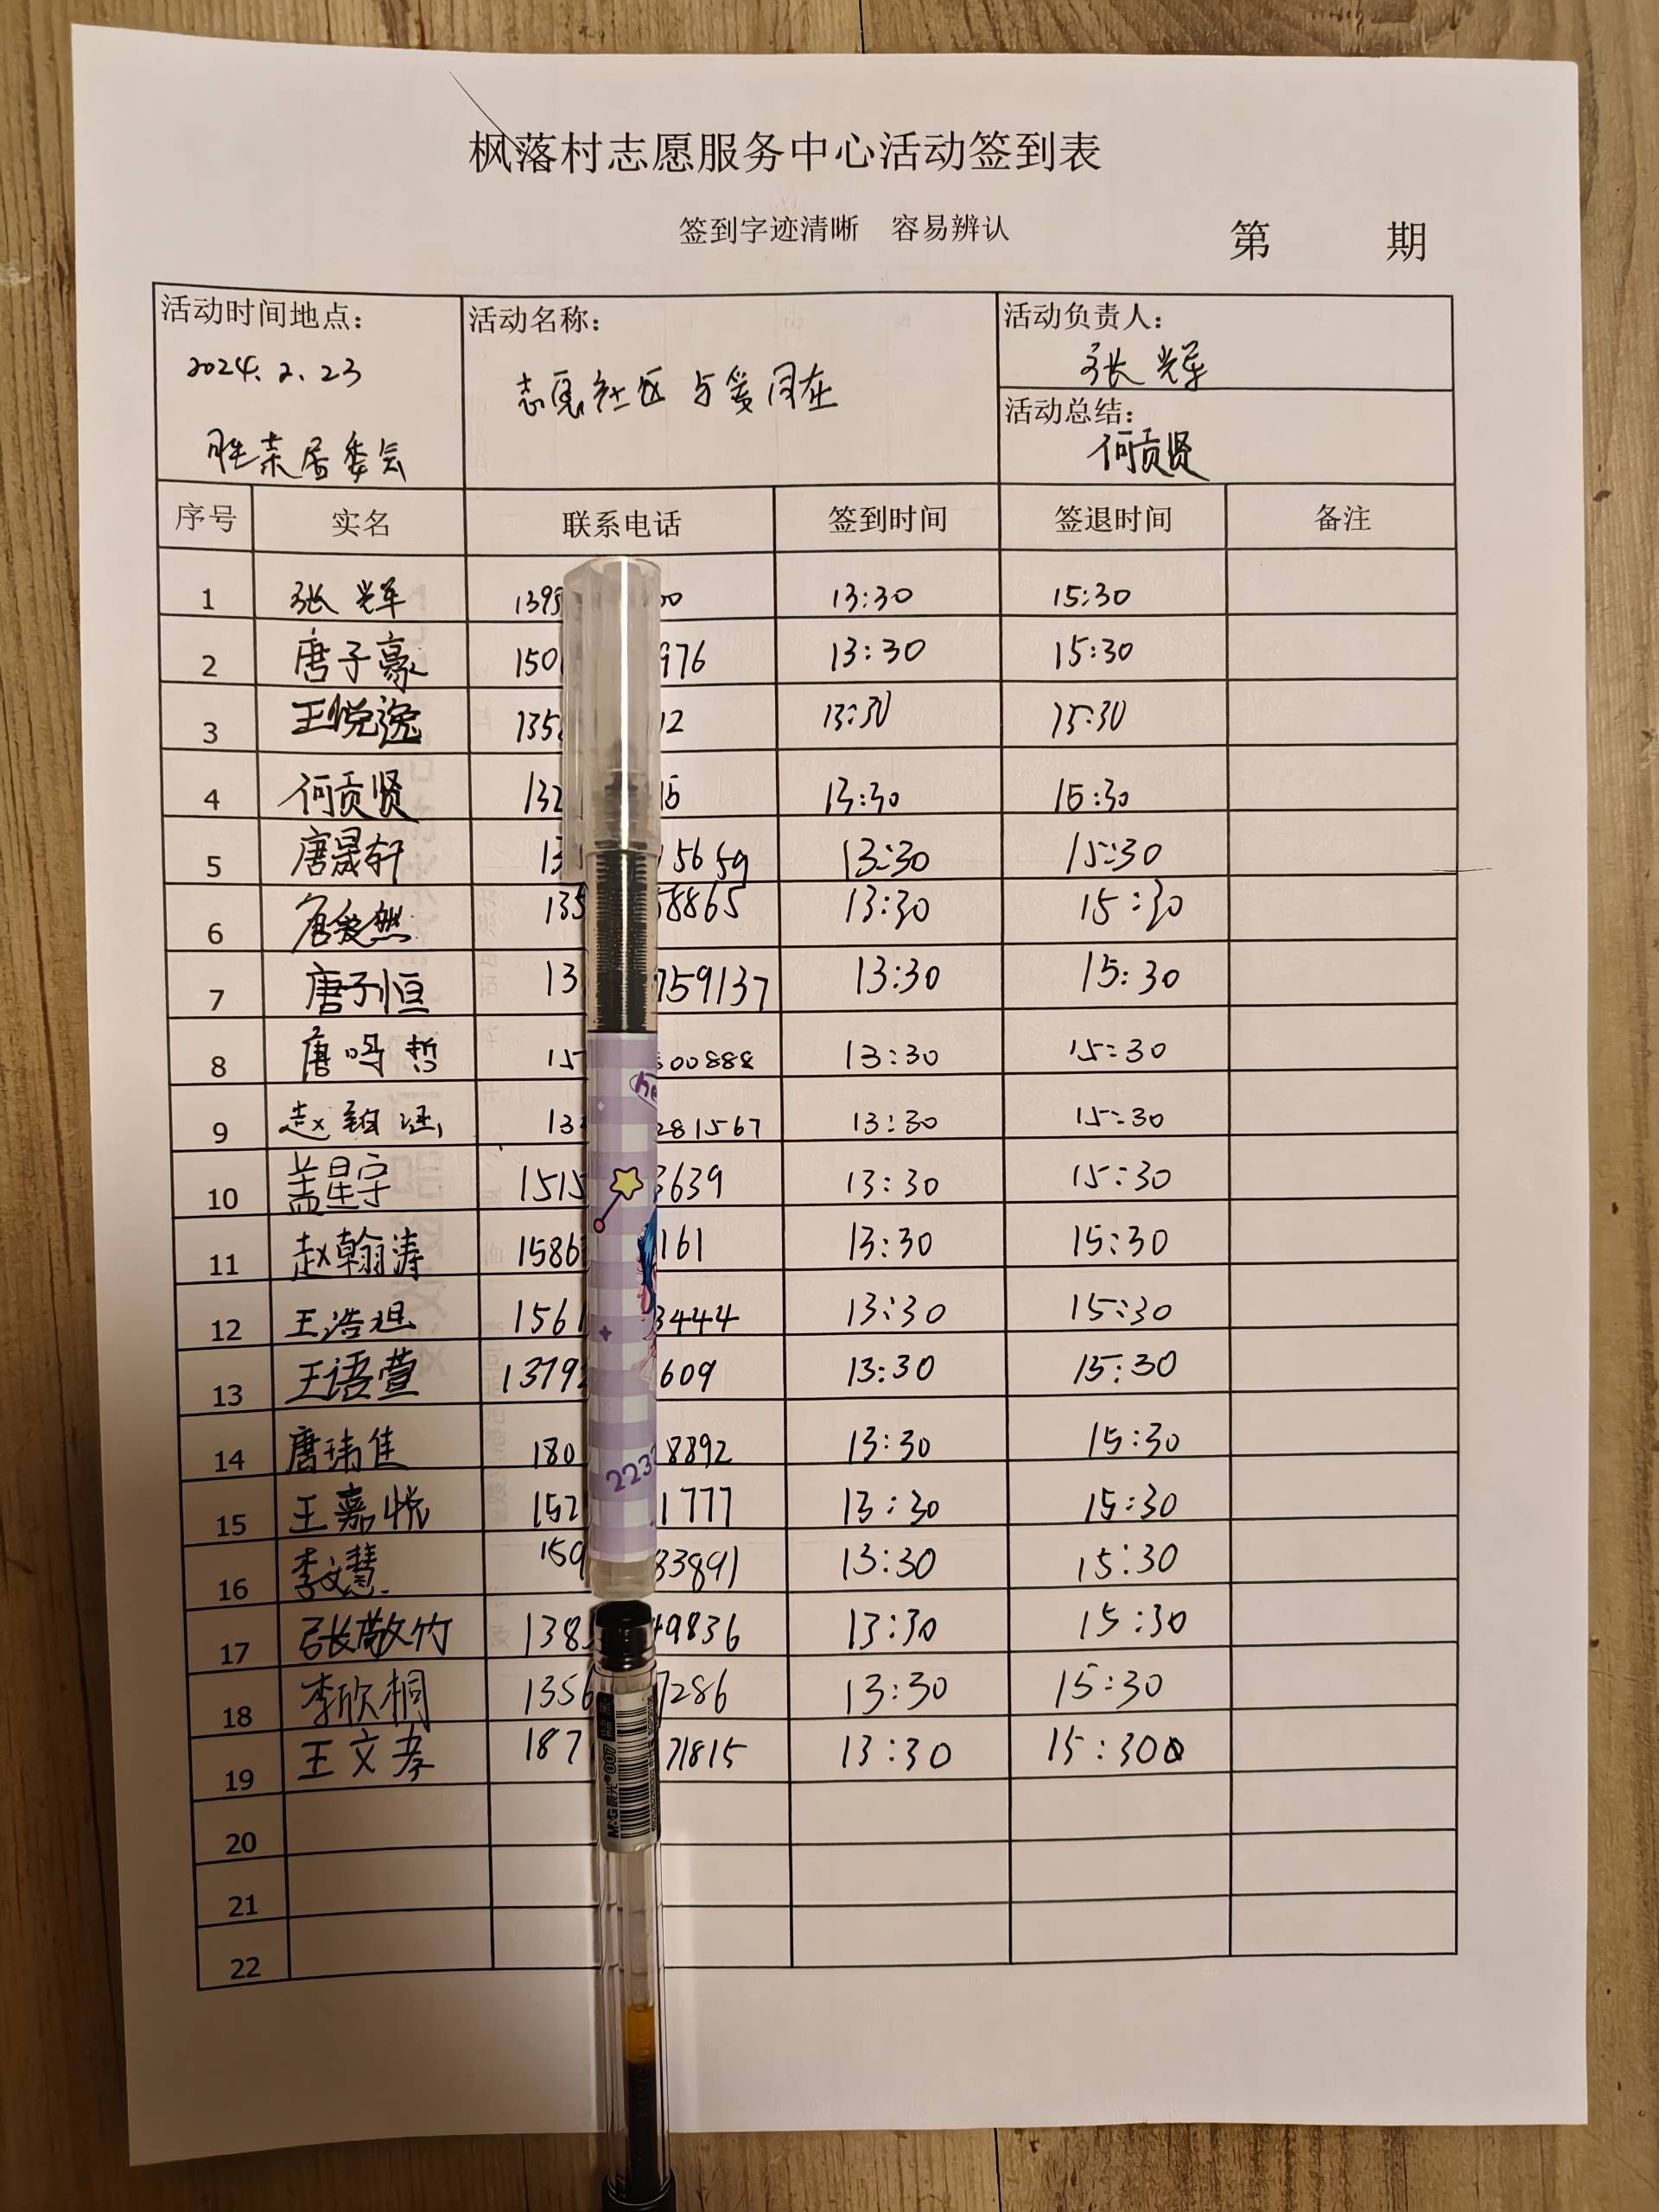 枫落村志愿服务中心活动签到表
签到字迹清晰 容易辨认
第 期
活动时间地点: 活动名称: 活动负责人:
2024.2.23 志愿社区 与爱同在 张辉
活动总结:
胜荣居委会 何贡贤
序号 实名 联系电话 签到时间 签退时间 备注
1 张辉 139 00 13:30 15:30
2 唐子豪 150 976 13:30 15:30
3 王悦逸 135 12 13:30 15:30
4 何贡贤 132 15 13:30 15:30
5 唐晟轩 13 15659 13:30 15:30
6 唐爱然 135 58865 13:30 15:30
7 唐子恒 13 759137 13:30 15:30
8 唐鸣哲 15 00888 13:30 15:30
9 赵 涵 13 281567 13:30 15:30
10 盖星宇 1515 3639 13:30 15:30
11 赵翰涛 1586 161 13:30 15:30
12 王浩 1561 3444 13:30 15:30
13 王语萱 1379 609 13:30 15:30
14 唐玮佳 180 8892 13:30 15:30
15 王嘉悦 152 1777 13:30 15:30
16 李文慧 159 33891 13:30 15:30
17 张敬竹 138 49836 13:30 15:30
18 李欣桐 1356 7286 13:30 15:30
19 王文孝 187 71815 13:30 15:30
20
21
22
he
223
M&G晨光®007